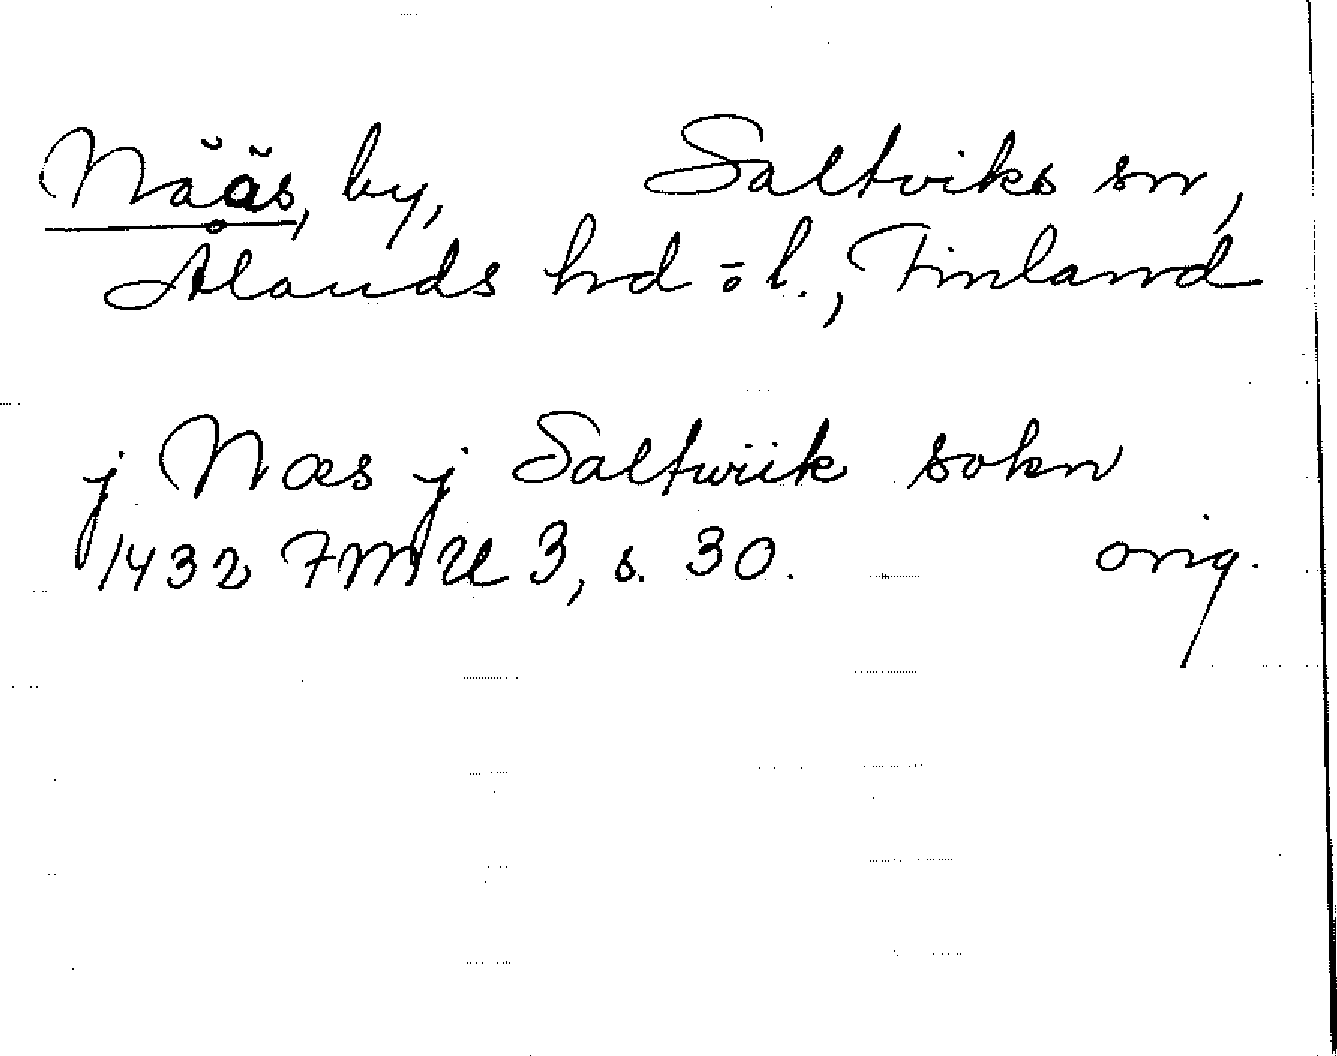 Nääs, by, Saltviks sn,
Ålands hd o. l., Finland
j Næs j Saltwiik sokn
1432 FMU 3, s. 30. orig.